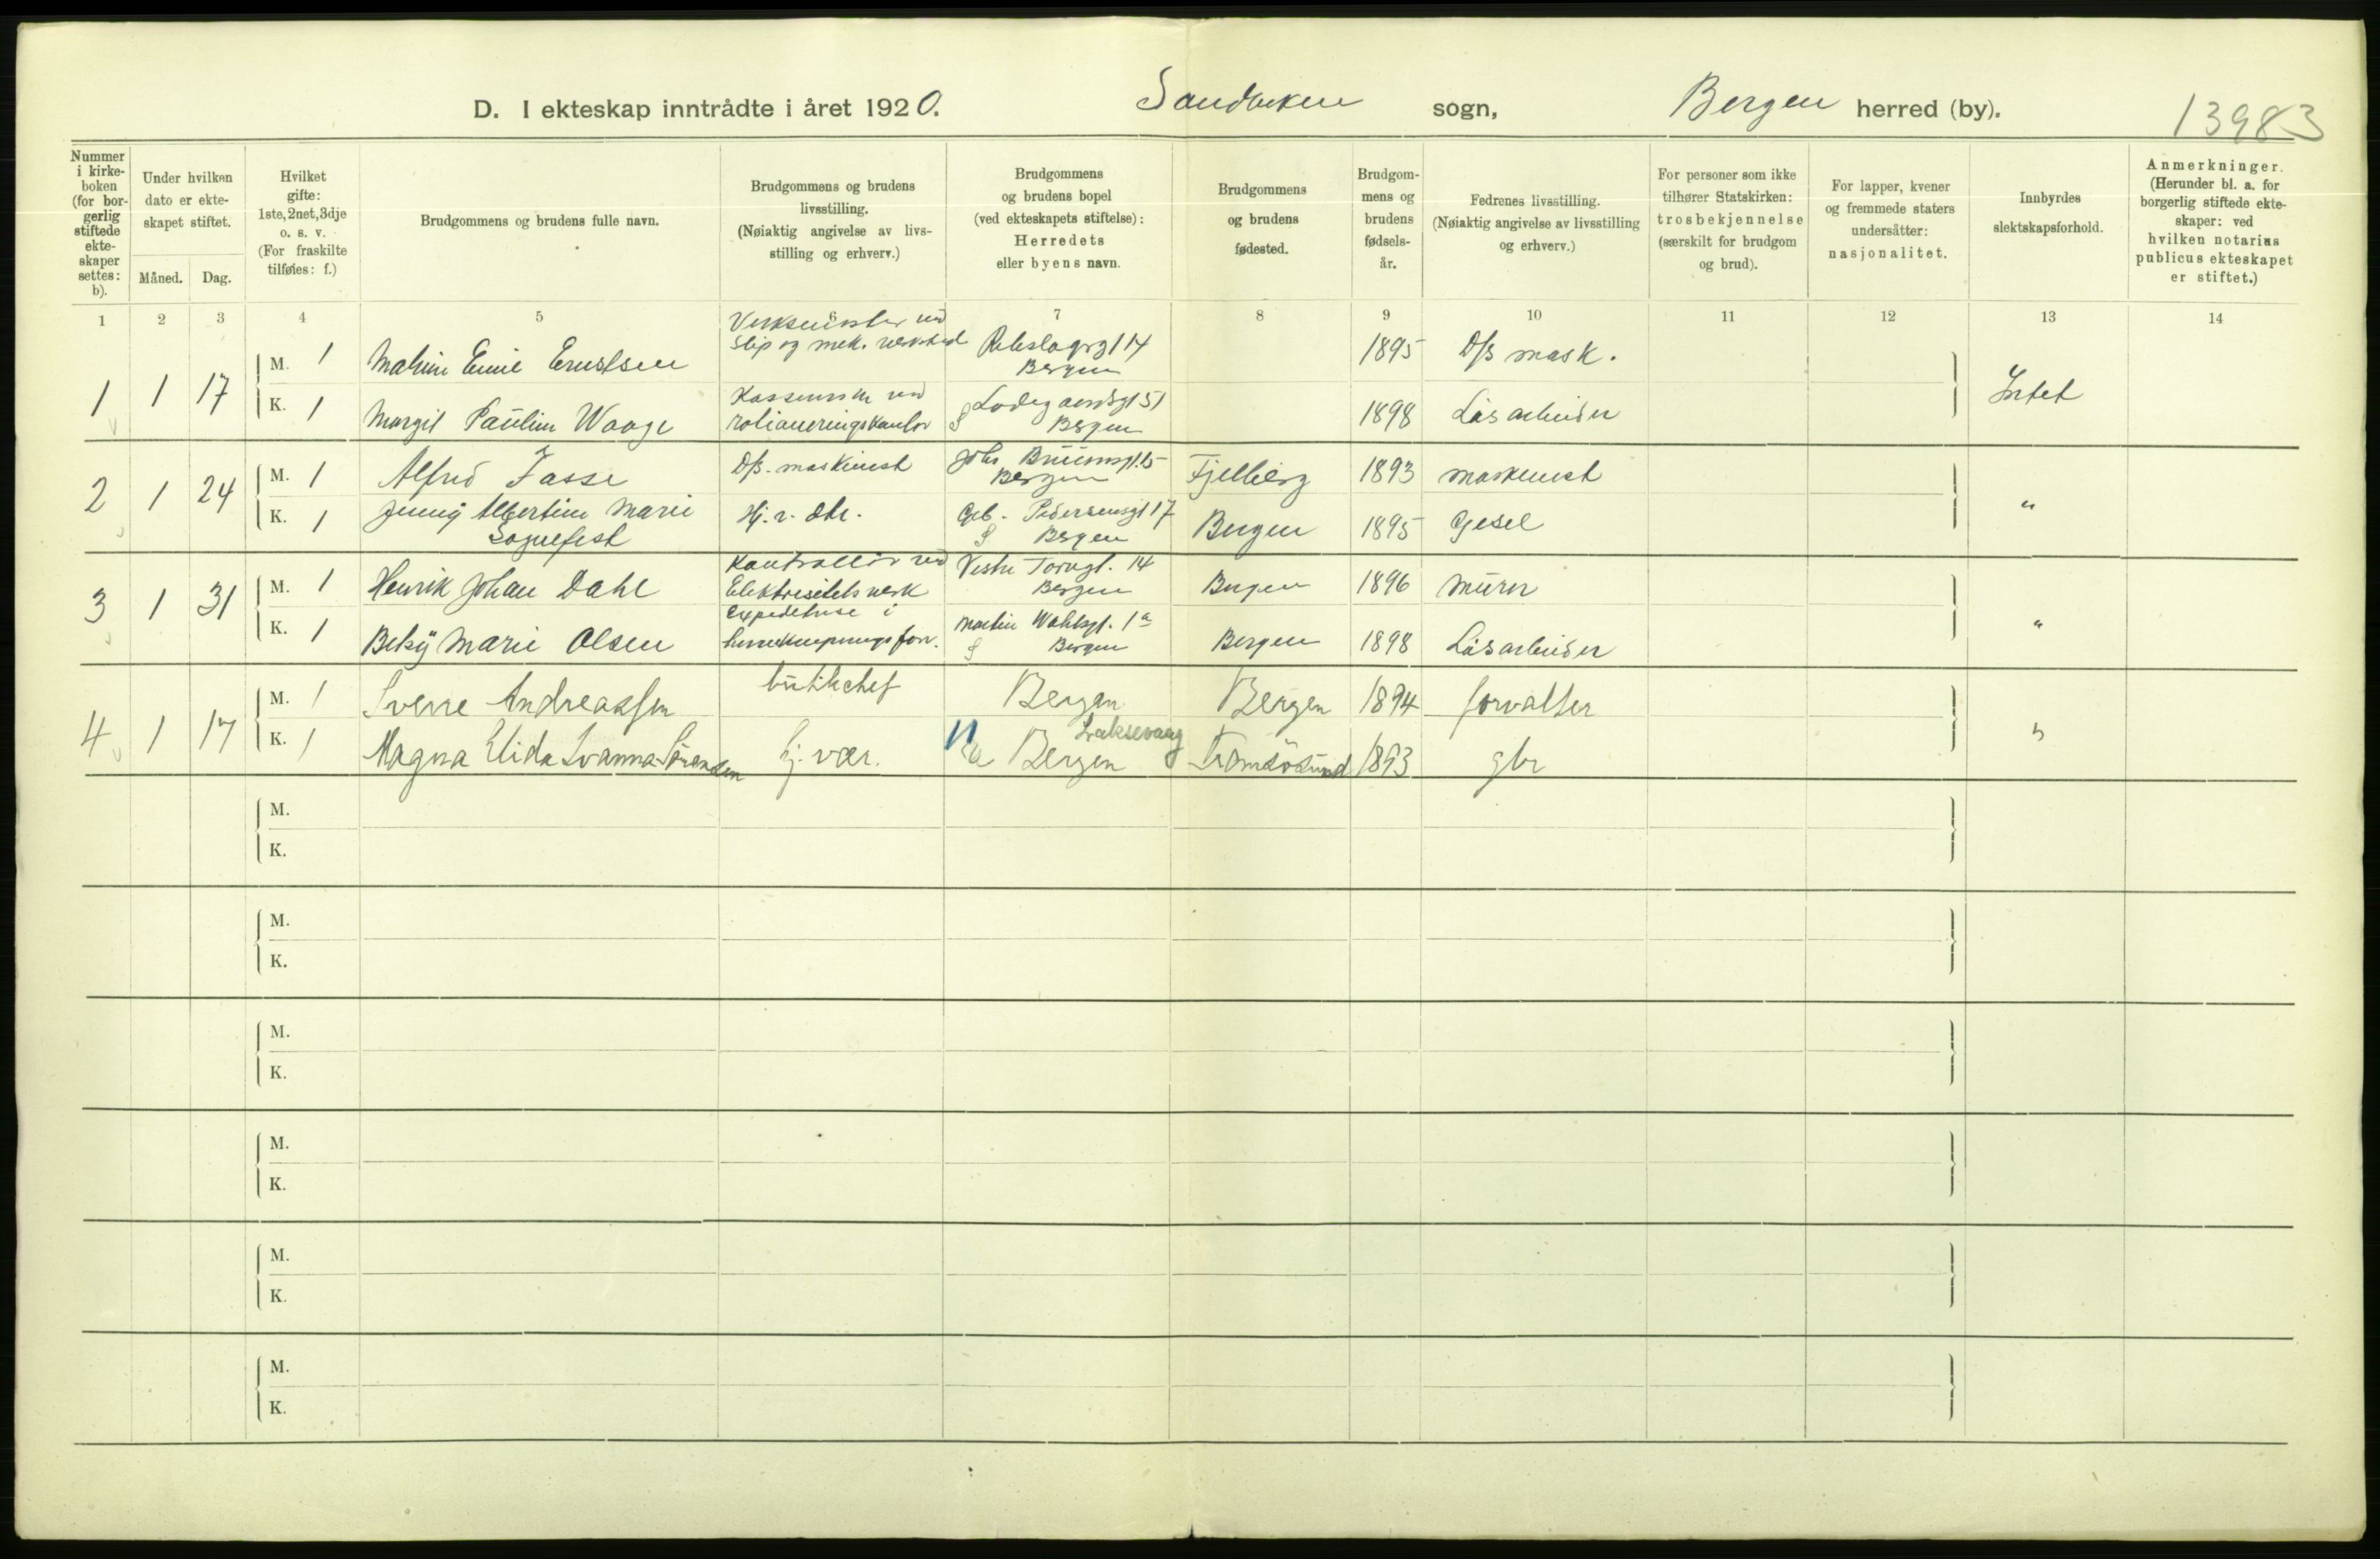 D. I ekteskap inntrådte i året 1920. Sandviken sogn, Bergen herred (by). 13983
Nummer i kirkeboken (for borgerlig stiftede ekteskaper settes: b).
Under hvilken dato er ekteskapet stiftet.
Måned. Dag.
Hvilket gifte: 1ste, 2net, 3dje o. s. v. (For fraskilte tilføies: f.)
Brudgommens og brudens fulle navn.
Brudgommens og brudens livsstilling. (Nøiaktig angivelse av livsstilling og erhverv.)
Brudgommens og brudens bopel (ved ekteskapets stiftelse): Herredets eller byens navn.
Brudgommens og brudens fødested.
Brudgommens og brudens fødselsår.
Fedrenes livsstilling. (Nøiaktig angivelse av livsstilling og erhverv.)
For personer som ikke tilhører Statskirken: trosbekjennelse (særskilt for brudgom og brud).
For lapper, kvener og fremmede staters undersåtter: nasjonalitet.
Innbyrdes slektskapsforhold.
Anmerkninger. (Herunder bl. a. for borgerlig stiftede ekteskaper: ved hvilken notarius publicus ekteskapet er stiftet.)
1 2 3 4 5 6 7 8 9 10 11 12 13 14
1 1 17 M. 1 Emil Ernstsen slip og mek. verksted Bergen 1895 D/s mask. Intet
K. 1 Margit Pauline Waage Kasserske ved rationeringskontor Ladegaardsgt 51 Bergen 1898 Løsarbeider
2 1 24 M. 1 Alfred Fasse D/s. maskinist Bergen Fjelberg 1893 maskinist "
K. 1 Jenny Albertine Marie Sognefest Hj. v. Pedersensgt 17 Bergen Bergen 1895 Gesel
3 1 31 M. 1 Henrik Johan Dahl Kontrollør ved Elektrisitetsverk Vestre Torvgt. 14 Bergen Bergen 1896 Murer "
K. 1 Beky Marie Olsen Expeditrise i Martin Wahlsgt. 1a Bergen Bergen 1898 Løsarbeider
4 1 17 M. 1 Sverre Andreassen butikchef Bergen Bergen 1894 forvalter "
K. 1 Magna Elida Ivanna Sørensen hj. vær. Laksevaag Bergen Tromsösund 1893 gbr
M.
K.
M.
K.
M.
K.
M.
K.
M.
K.
M.
K.